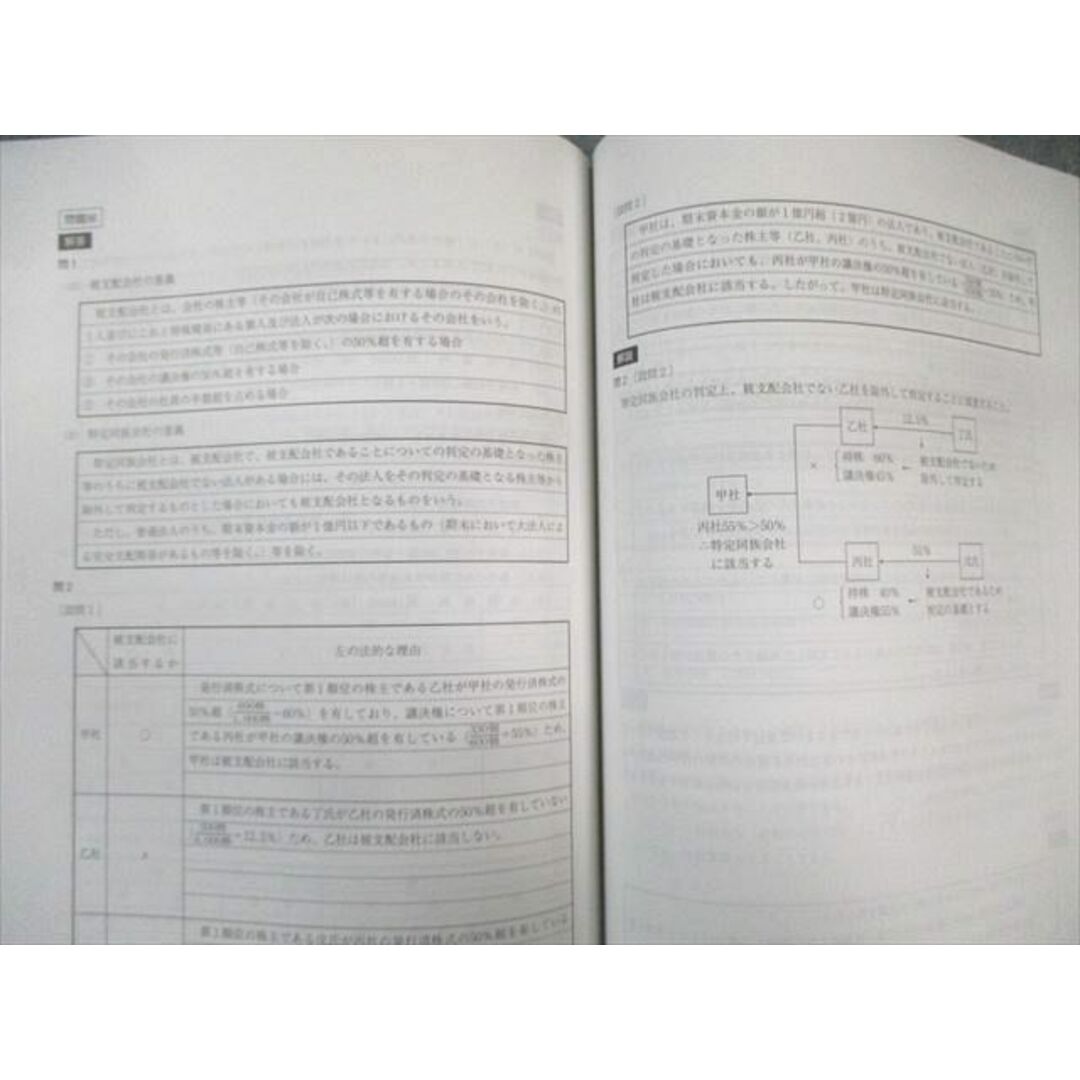 解答
問1
(1) 被支配会社の意義
被支配会社とは、会社の株主等(その会社が自己株式等を有する場合のその会社を除く。)の
1人並びにこれと特殊関係にある個人及び法人が次の場合におけるその会社をいう。
① その会社の発行済株式等(自己株式等を除く。)の50%超を有する場合
② その会社の議決権の50%超を有する場合
③ その会社の社員の半数超を占める場合
(2) 特定同族会社の意義
特定同族会社とは、被支配会社で、被支配会社であることについての判定の基礎となった株主
等のうちに被支配会社でない法人がある場合には、その法人をその判定の基礎となる株主等から
除外して判定するものとした場合においても被支配会社となるものをいう。
ただし、普通法人のうち、期末資本金の額が1億円以下であるもの(期末において大法人によ
る完全支配関係があるもの等を除く。)等を除く。
問2
〔設問1〕
被支配会社に
該当するか
左の法的な理由
甲社
○
発行済株式について第1順位の株主である乙社が甲社の発行済株式の
50%超(600株/1,000株=60%)を有しており、議決権について第1順位の株主
である丙社が甲社の議決権の50%超を有している(330個/600個=55%)ため、
甲社は被支配会社に該当する。
乙社
×
第1順位の株主である丁氏が乙社の発行済株式の50%超を有していない
=12.5%)ため、乙社は被支配会社に該当しない。
第1順位の株主である戊氏が丙社の発行済株式の50%超を有している
〔設問2〕
甲社は、期末資本金の額が1億円超(2億円)の法人であり、被支配会社であることについて
の判定の基礎となった株主等(乙社、丙社)のうち、被支配会社でない法人(乙社)を除外して
判定した場合においても、丙社が甲社の議決権の50%超を有している =55%)ため、甲
社は被支配会社に該当する。したがって、甲社は特定同族会社に該当する。
解説
問2〔設問2〕
特定同族会社の判定上、被支配会社でない乙社を除外して判定することに留意すること。
乙社
12.5%
丁氏
×
持株 60%
議決権45%
被支配会社でないため
除外して判定する
甲社
丙社55%>50%
∴特定同族会社
に該当する
丙社
戊氏
○
持株 40%
議決権55%
被支配会社であるため
判定の基礎とする